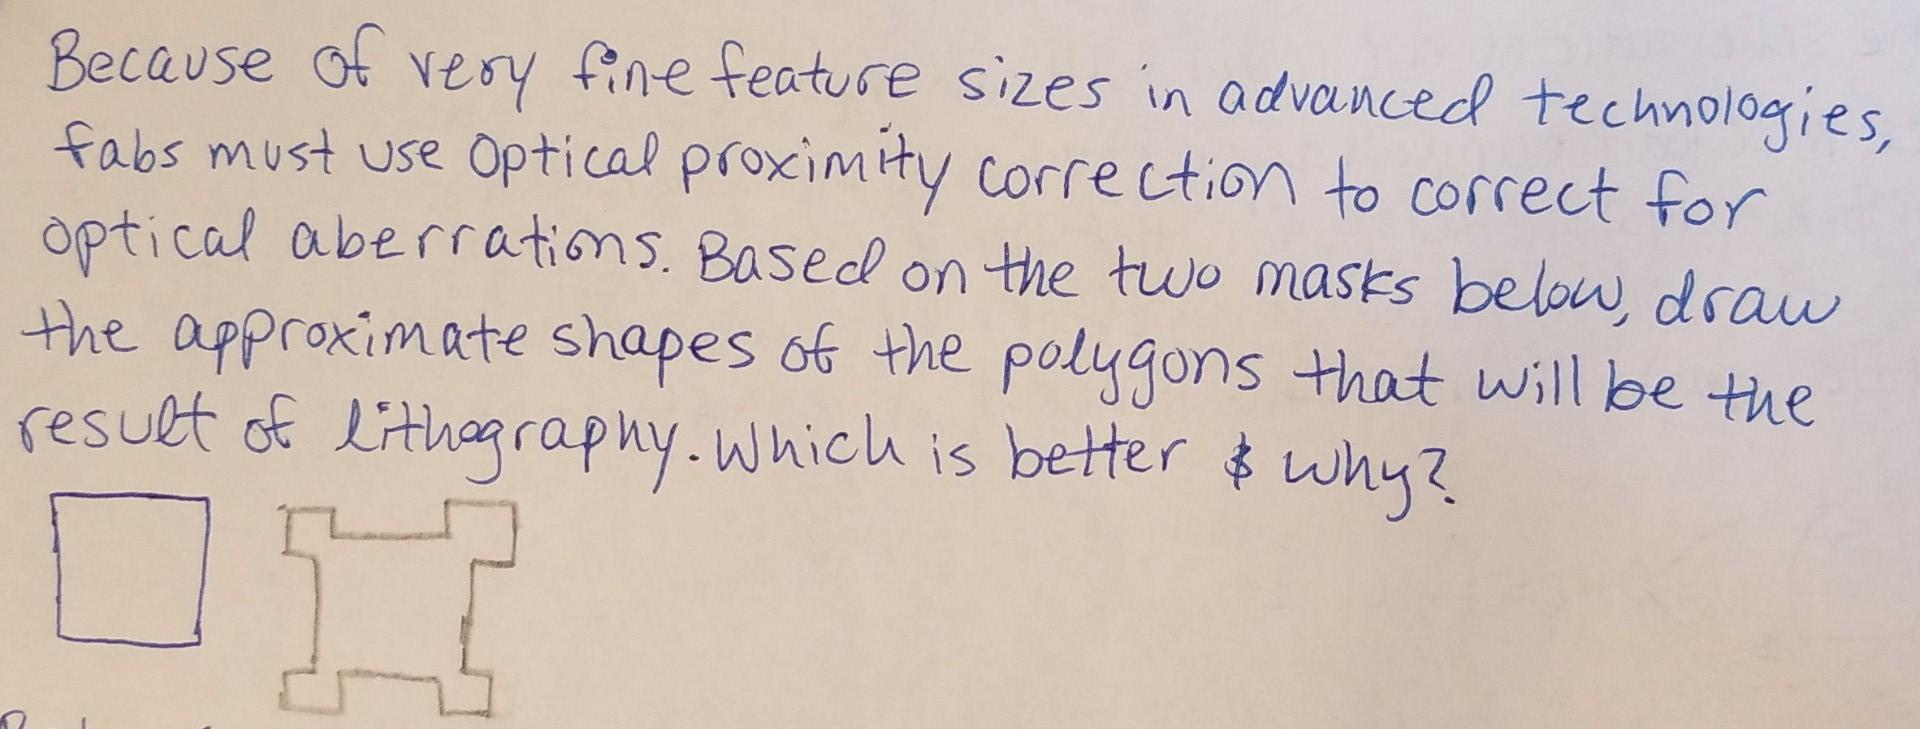 Because of very fine feature sizes in advanced technologies,
fabs must use optical proximity correction to correct for
optical aberrations. Based on the two masks below, draw
the approximate shapes of the polygons that will be the
result of lithography. Which is better & why?